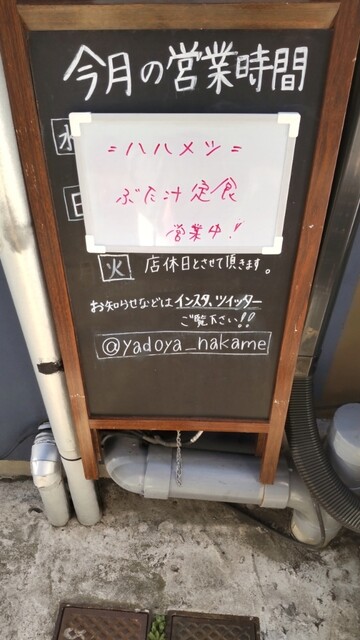 今月の営業時間
水
日
=ハハメシ=
ぶた汁定食
営業中!!
火 店休日とさせて頂きます。
お知らせなどはインスタ、ツイッター
ご覧下さい!!
@yadoya_nakame